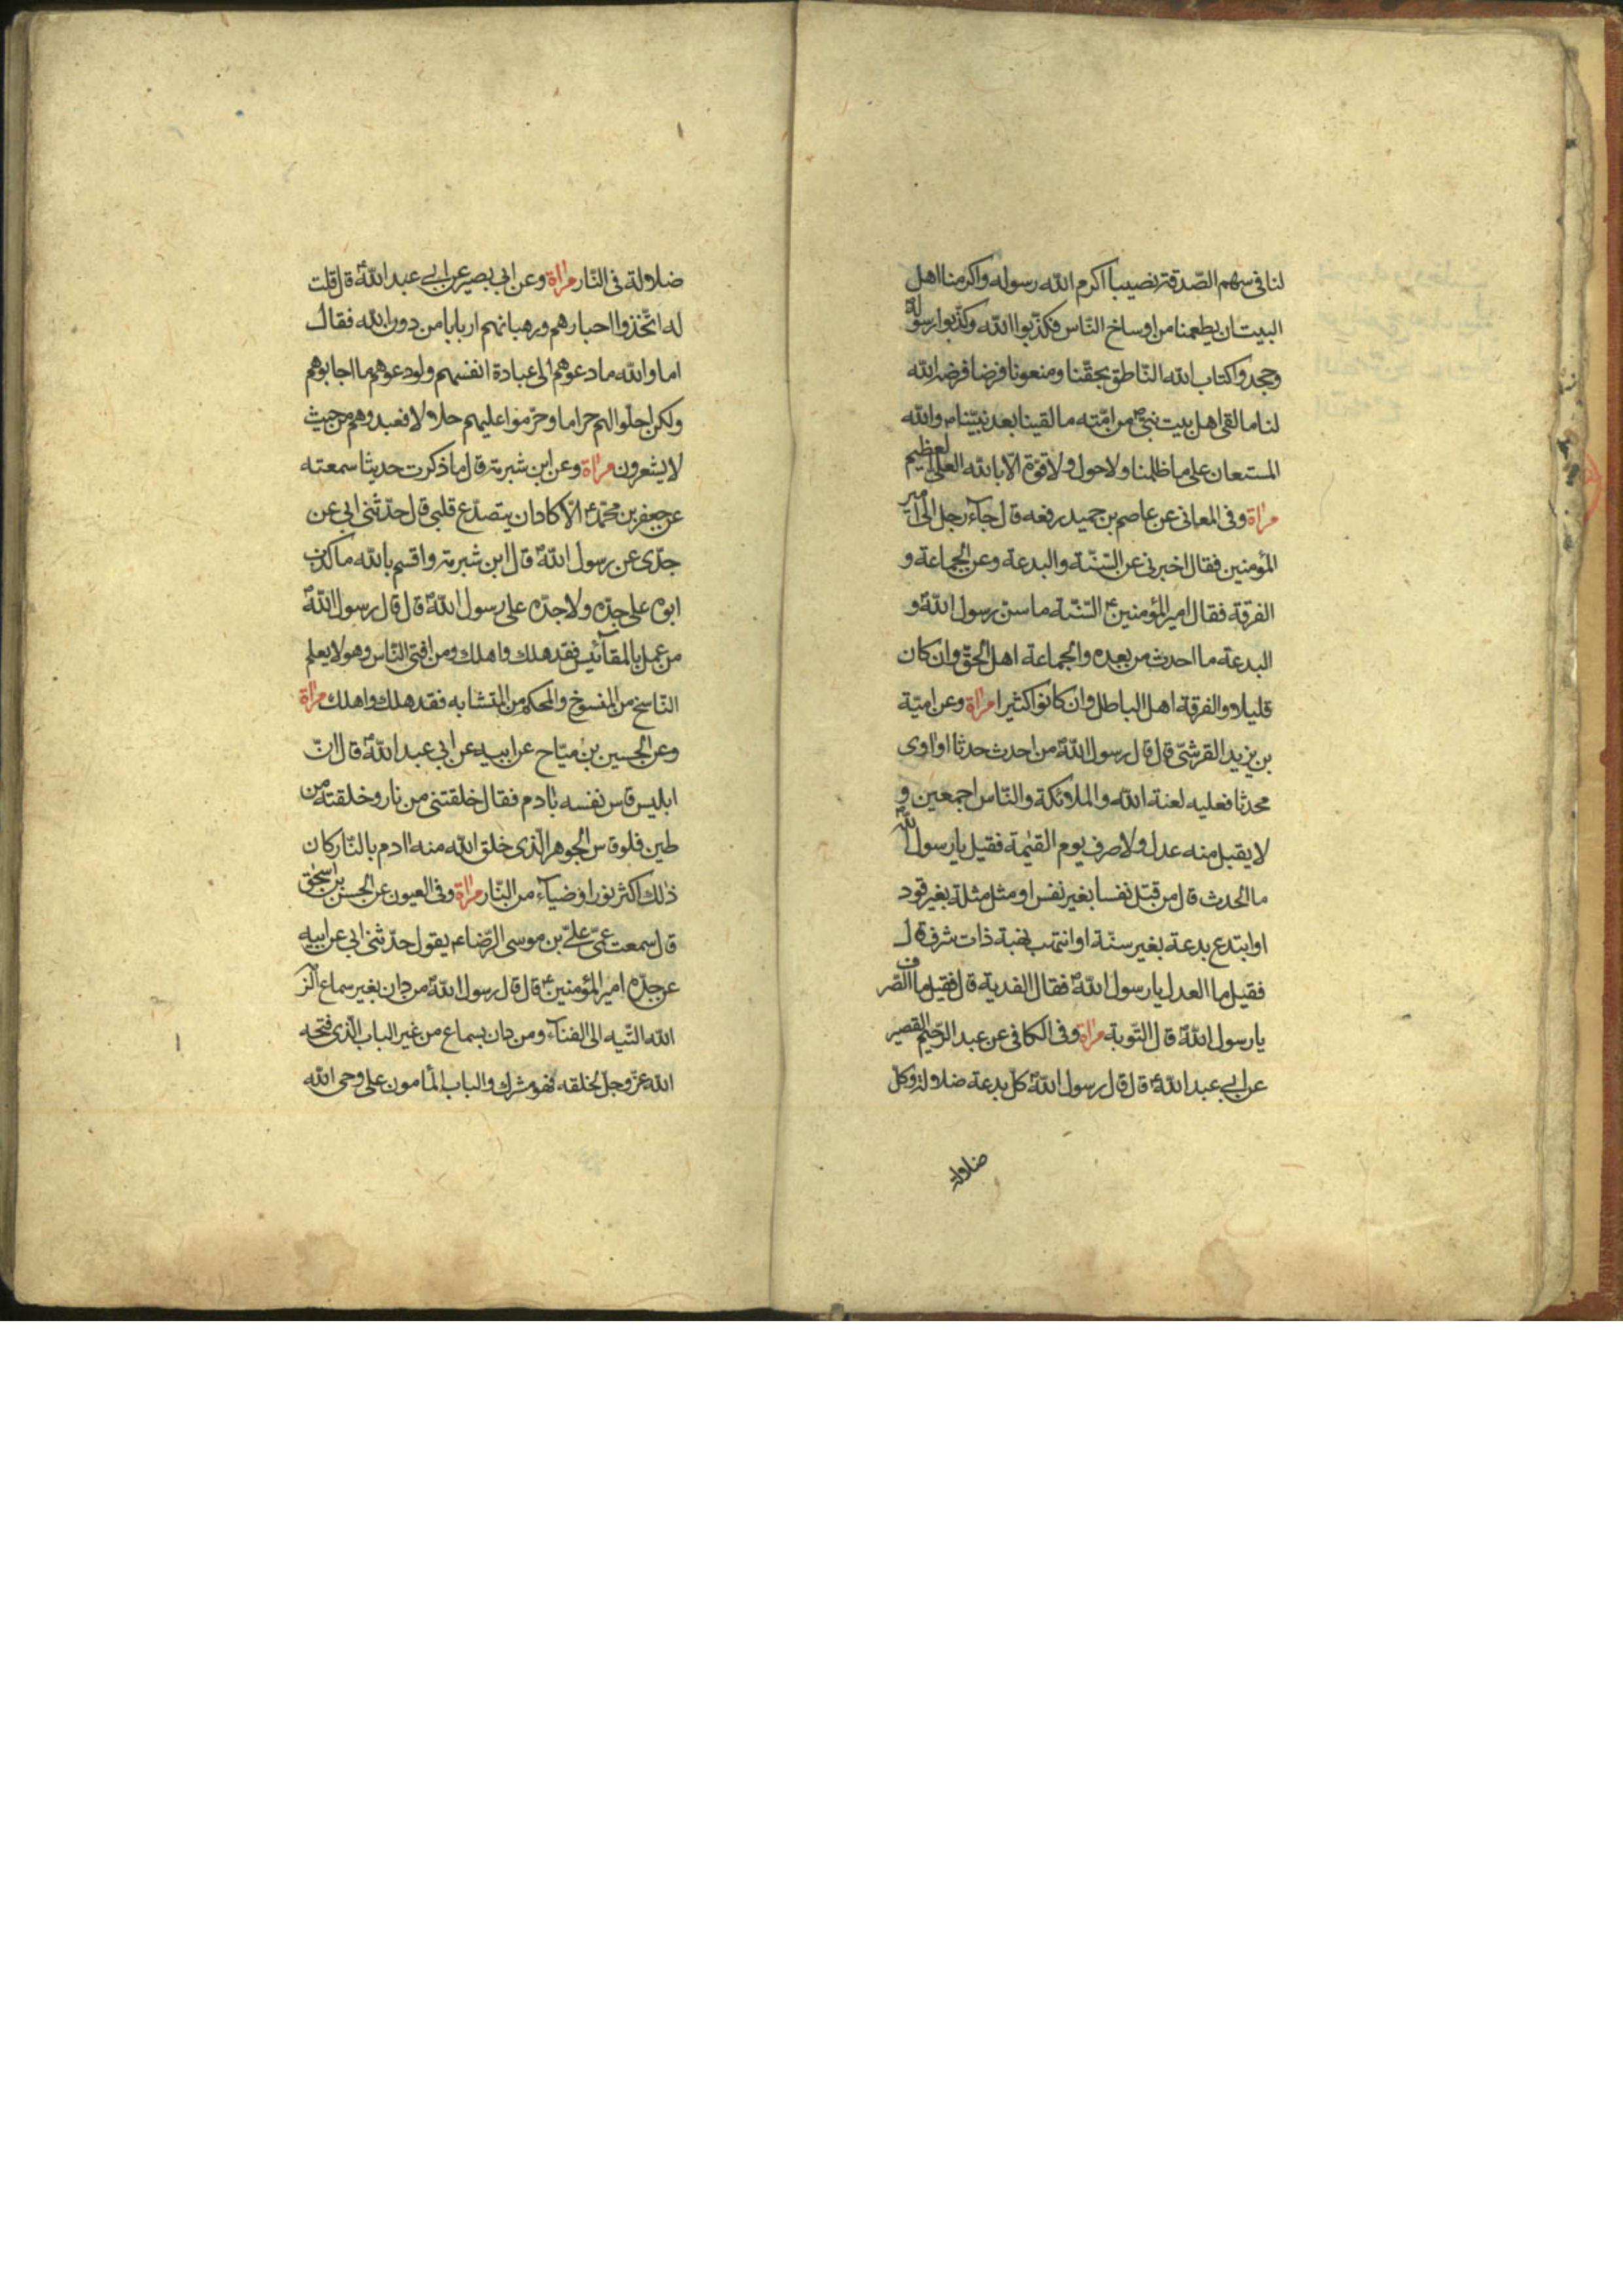 لنا فى سهم الصّدقة نصيبا اكرم الله رسوله واكرمنا اهل
البيت ان يطعمنا من اوساخ النّاس فكذّبوا الله وكذّبوا رسوله
وجحدوا كتاب الله النّاطق بحقّنا ومنعونا فرضا فرضه الله
لنا ما لقى اهل بيت نبىّ من امّته ما لقينا بعد نبيّنا ص والله
المستعان على ما ظلمنا ولا حول ولا قوّة الّا بالله العلى العظيم
مراة وفى المعانى عن عاصم بن حميد رفعه قال جآء رجل الى امير
المؤمنين فقال اخبرنى عن السّنّة والبدعة وعن الجماعة و
الفرقة فقال امير المؤمنين ع السّنّة ما سنّ رسول الله ص و
البدعة ما احدث من بعده والجماعة اهل الحقّ وان كان
قليلا والفرقة اهل الباطل وان كانوا كثيرا مراة وعن اميّة
بن يزيد القرشىّ قال قال رسول الله ص من احدث حدثا او اوى
محدثا فعليه لعنة الله والملائكة والنّاس اجمعين و
لا يقبل منه عدل ولا صرف يوم القيٰمة فقيل يا رسول الله
ما الحدث قال من قتل نفسا بغير نفس او مثل مثلة بغير قود
او ابتدع بدعة بغير سنّة او انتهب نهبة ذات شرف قال
فقيل ما العدل يا رسول الله ص فقال الفدية قال فقيل ما الصّرف
يا رسول الله ص قال التّوبة مراة وفى الكافى عن عبد الرّحيم القصير
عن ابى عبد الله ع قال قال رسول الله ص كل بدعة ضلالة وكل
ضلالة
ضلالة فى النّار مراة وعن ابى بصير عن ابى عبد الله ع قال قلت
له اتّخذوا احبارهم ورهبانهم اربابا من دون الله فقال
اما والله ما دعوهم الى عبادة انفسهم ولو دعوهم ما اجابوهم
ولكن احلّوا لهم حراما وحرّموا عليهم حلالا فعبدوهم من حيث
لا يشعرون مراة وعن ابن شبرمة قال ما ذكرت حديثا سمعته
عن جعفر بن محمّد ع الّا كاد ان يتصدّع قلبى قال حدّثنى ابى عن
جدّى عن رسول الله ص قال ابن شبرمة واقسم بالله ما كذب
ابوه على جدّه ولا جدّه على رسول الله ص قال قال رسول الله ص
من عمل بالمقائيس فقد هلك واهلك ومن افتى النّاس وهو لا يعلم
النّاسخ من المنسوخ والمحكم من المتشابه فقد هلك واهلك مراة
وعن الحسين بن ميّاح عن ابيه عن ابى عبد الله ع قال انّ
ابليس قاس نفسه بادم فقال خلقتنى من نار وخلقته من
طين فلو قاس الجوهر الّذى خلق الله منه ادم بالنّار كان
ذلك اكثر نورا وضيآء من النّار مراة وفى العيون عن الحسن بن اسحٰق
قال سمعت عمّى علىّ بن موسى الرّضا ع يقول حدّثنى ابى عن ابيه
عن جدّه امير المؤمنين ع قال قال رسول الله ص من دان بغير سماع الز
الله التّيه الى الفنآء ومن دان بسماع من غير الباب الّذى فتحه
الله عزّ وجلّ لخلقه فهو مشرك والباب المأمون على وحى الله